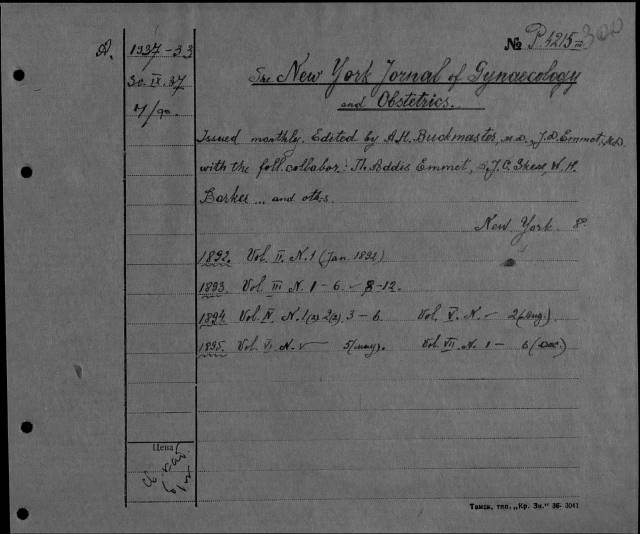 A.
1937-33
30.IX.37
№ P.4215 300
The New York Jornal of Gynaecology
and Obstetrics.
Issued monthly. Edited by A.H. Buckmaster, M.D., J.D. Emmet, M.D.
with the foll. collabor.: Th. Addis Emmet, J.C. Skene, W.H.
Barker ... and oths.
New York 8°
1892. Vol. II. N. 1 (Jan 1892)
1893. Vol. III N. 1-6. 8-12.
1894. Vol. IV. N. 1(2) 2(2), 3-6 Vol. V. N. 2 (Aug.)
1895. Vol. VI. N. 5 (may). Vol. VII. N. 1 - 6 (Dec.)
Цена
Тамск, тпо. „Кр. Зн." 36- 3041